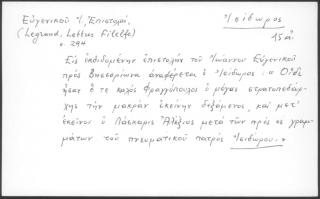 Εὐγενικοῦ Ἰ., Ἐπιστολαί,
(Legrand, Lettres Filelfe)
σ. 294
Ἰσίδωρος
15 α.
Εἰς ἐκδιδομένην ἐπιστολὴν τοῦ Ἰωάννου Εὐγενικοῦ
πρὸς Βησσαρίωνα ἀναφέρεται ὁ Ἰσίδωρος:
ὅ τε καλὸς Φραγγόπουλος ὁ μέγας στρατοπεδάρ-
χης τὴν μακρὰν ἐκείνην δεξάμενος, καὶ μετ'
ἐκεῖνον ὁ Λάσκαρις Ἀλέξιος μετὰ τῶν πρός σε γραμ-
μάτων τοῦ πνευματικοῦ πατρὸς Ἰσιδώρου.»